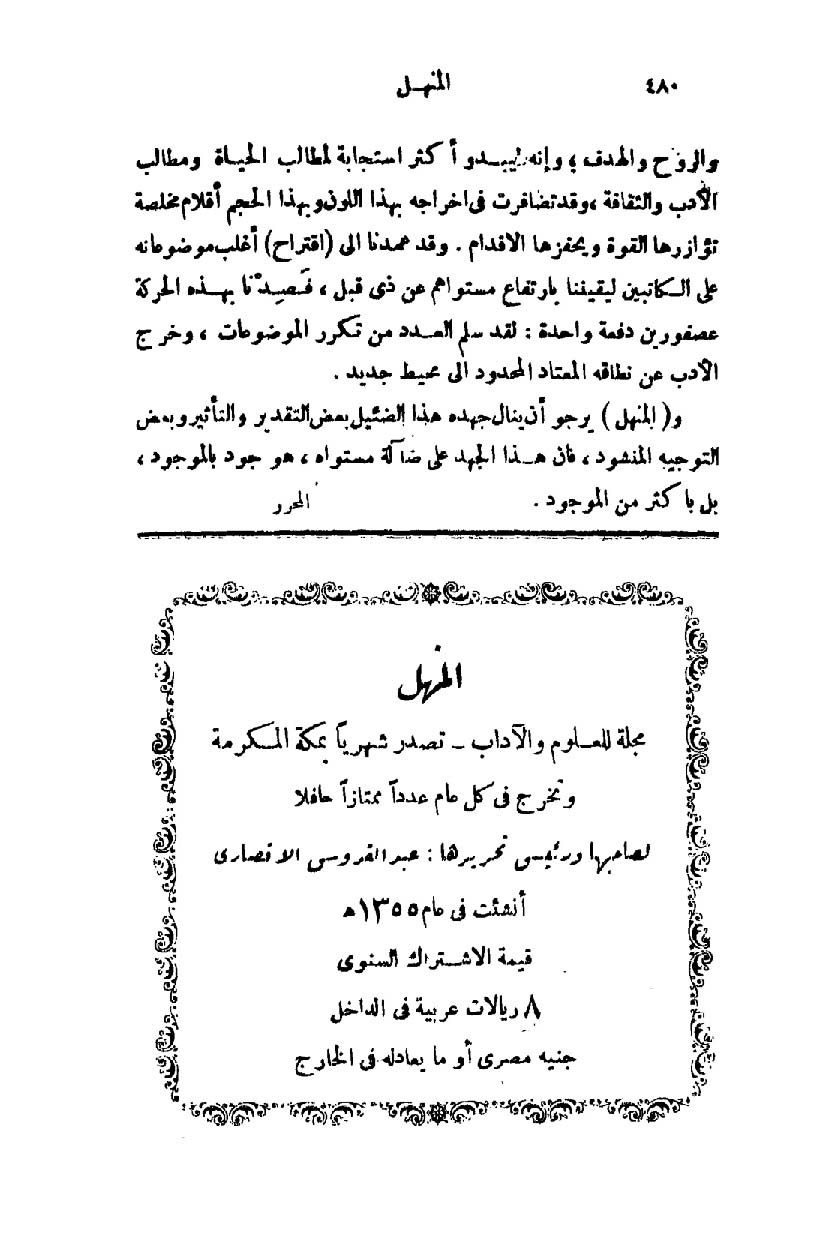 ٤٨٠ المنهل
والروح والهدف ، وإنه ليبدو أكثر استجابة لمطالب الحياة ومطالب
الأدب والثقافة ، وقد تضافرت فى اخراجه بهذا اللون وبهذا الحجم أقلام مخلصة
تؤازرها القوة ويحفزها الاقدام . وقد عمدنا الى (اقتراح) أغلب موضوعاته
على الكاتبين ليقيننا بارتفاع مستواهم عن ذى قبل ، فصِدْنا بهذه الحركة
عصفورين دفعة واحدة : لقد سلم العدد من تكرر الموضوعات ، وخرج
الأدب عن نطاقه المعتاد المحدود الى محيط جديد .
و ( المنهل ) يرجو أن ينال جهده هذا الضئيل بعض التقدير والتأثير وبعض
التوجيه المنشود ، فان هذا الجهد على ضآلة مستواه ، هو جود بالموجود ،
بل بأكثر من الموجود . المحرر
المنهل
مجلة للعلوم والآداب - تصدر شهرياً بمكة المكرمة
وتخرج فى كل عام عدداً ممتازاً حافلا
لصاحبها ورئيس تحريرها : عبد القدوس الانصارى
أنشئت فى عام ١٣٥٥ه
قيمة الاشتراك السنوى
٨ ريالات عربية فى الداخل
جنيه مصرى أو ما يعادله فى الخارج